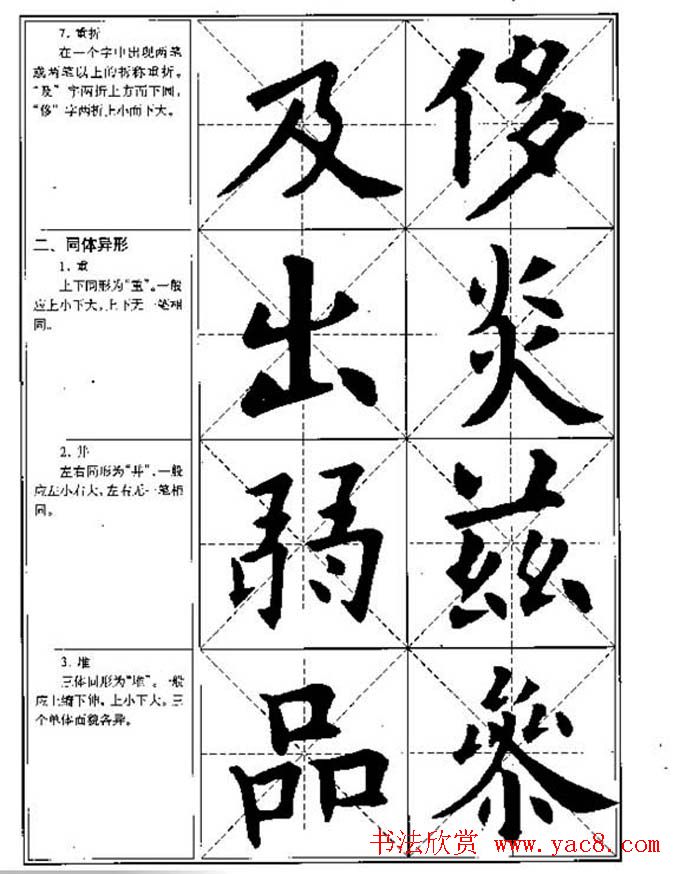 7. 重折
在一个字中出现两笔
或两笔以上的折称重折。
“及”字两折上方而下圆,
“侈”字两折上小而下大。
及 侈
二、同体异形
1. 重
上下同形为“重”。一般
应上小下大,上下无一笔相
同。
出 炎
2. 并
左右同形为“并”,一般
应左小右大,左右无一笔相
同。
弱 兹
3. 堆
三体同形为“堆”。一般
应上缩下伸,上小下大,三
个单体面貌各异。
品 叅
书法欣赏 www.yac8.com